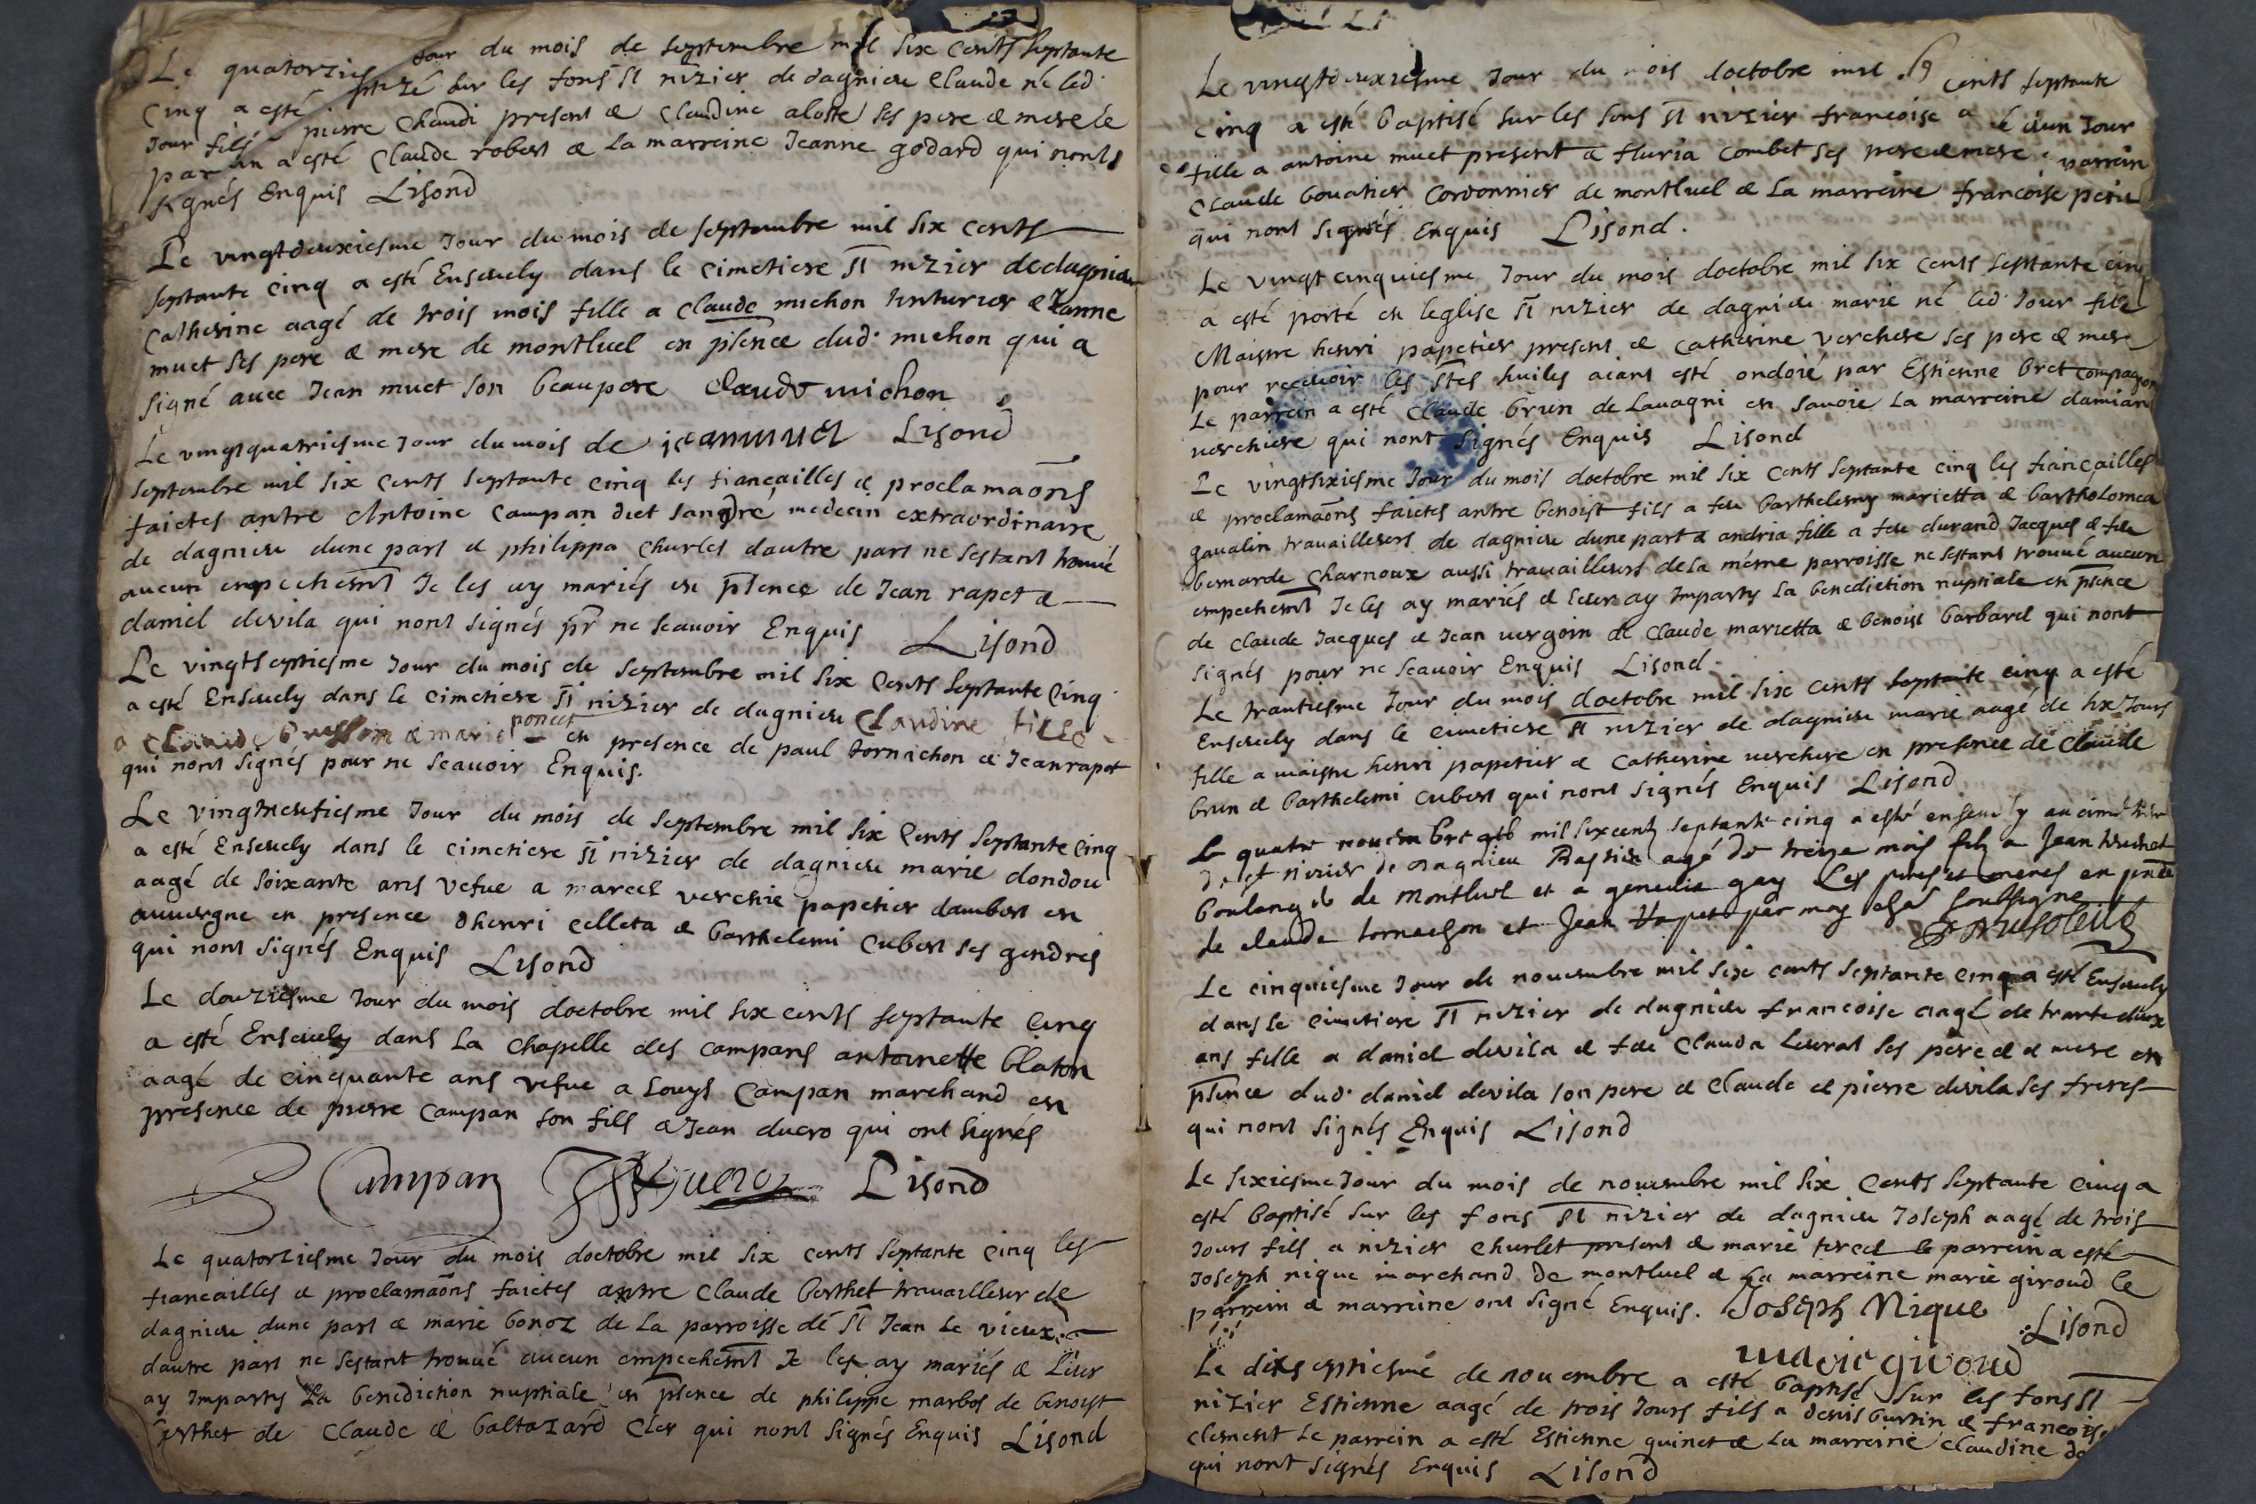 Le quatorzies jour du mois de septembre mil six cents septante
cinq a esté ptizé sur les fons st nizier de dagnieu Claude né led.
jour fils pierre Chaudi present & Claudine aloste ses pere & mere le
parrin a esté Claude robert & la marreine Jeanne godard qui nonts
signés Enquis Lisond
Le vingtdeuxiesme Jour du mois de septembre mil six cents
septante cinq a esté Ensevely dans le cimetiere st nizier de dagnieu
Catherine aagé de trois mois fille a claude michon tinturier & Jeanne
muet ses pere & mere de montluel en pnce dud. michon qui a
signé avec Jean muet son beaupere Claude michon
Le vingtquatriesme Jour du mois de jeanmuet Lisond
septembre mil six cents septante cinq les fiancailles & proclamaons
faictes antre Antoine Campan dict sandre medecin extraordinaire
de dagnieu dune part & philippa Churlet dautre part ne sestant trouvé
aucun enpechemt Je les ay mariés en pnce de Jean rapet &
daniel devila qui nont signés pr ne scavoir Enquis Lisond
Le vingtseptiesme Jour du mois de septembre mil six cents septante cinq
a esté Ensevely dans le cimetiere st nizier de dagnieu Claudine fille
a Claude brisson & marie poncet en presence de paul tornachon & Jean rapet
qui nont signés pour ne scavoir Enquis.
Le vingtneufiesme Jour du mois de septembre mil six cents septante cinq
a esté Ensevely dans le cimetiere st nizier de dagnieu marie dondou
aagé de soixante ans vefue a marcel verchie papetier dambert en
auvergne en presence dhenri celleta & barthelemi cubert ses gendres
qui nont signés Enquis Lisond
Le douziesme Jour du mois doctobre mil six cents septante cinq
a esté Ensevely dans la chapelle des campans antoinette blaton
aagé de cinquante ans vefue a Louys Campan marchand en
presence de pierre Campan son fils & Jean ducro qui ont signés
Campan Ducroz Lisond
Le quatorziesme Jour du mois doctobre mil six cents septante cinq les
fiancailles & proclamaons faictes antre Claude berthet travailleur de
dagnieu dune part & marie bonoz de la parroisse de st Jean le vieux
dautre part ne sestant trouvé aucun empechemt Je les ay mariés & Leur
ay Imparty La benediction nuptiale en pnce de philippe marbos de benoist
berthet de Claude & baltazard Cler qui nont signés Enquis Lisond
Le vingtdeuxiesme Jour du mois doctobre mil six cents septante
cinq a esté baptisé sur les fons st nizier francoise a é dun Jour
fille a antoine muet present & fluria combet ses pere & mere parrein
Claude bouatier cordonnier de montluel & la marreine francoise petit
qui nont signés Enquis Lisond.
Le vingtcinquiesme Jour du mois doctobre mil six cents septante cinq
a esté porté en leglise st nizier de dagnieu marie né led. Jour fille
Maistre henri papetier present & Catherine verchere ses pere & mere
pour recevoir les stes huiles aiant esté ondoié par Estienne bret compagnon
Le parrein a esté Claude brun de Lavagni en savoie La marreine damian
verchiere qui nont signés Enquis Lisond
Le vingtsixiesme Jour du mois doctobre mil six cents septante cinq les fiancailles
& proclamaons faictes antre benoist fils a feu barthelemy marietta & bartholomea
gavalin travailleurs de dagnieu dune part & andria fille a feu durand Jacques & feu
bernarde Charnoux aussi travailleurs de la méme parroisse ne sestant trouvé aucun
empechemt Je les ay mariés & leur ay Imparty La benediction nuptiale en pnce
de Claude Jacques & Jean vergoin de Claude marietta & benoist barbarel qui nont
signés pour ne scavoir Enquis Lisond.
Le trantiesme Jour du mois doctobre mil six cents septante cinq a esté
Ensevely dans le cimetiere st nizier de dagnieu marie aagé de six Jours
fille a maistre henri papetier & Catherine verchere en presence de Claude
brun & barthelemi cubert qui nont signés Enquis Lisond
le quatre novembre mil six cents septante cinq a esté ensevely au cimetiere
de st nizier de dagnieu Bastien agé de treize mois filz a Jean
boulanger de Montluel et a genevie gay Les peres et meres en pnce
de claude tornachon et Jean rapet par moy soubsigne
Le cinquiesme Jour de novembre mil six cents septante cinq a esté Ensevely
dans le cimetiere st nizier de dagnieu francoise aagé de trante deux
ans fille a daniel devila & feu Clauda Leurat ses pere & mere en
pnce dud. daniel devila son pere & Claude & pierre devila ses freres
qui nont signés Enquis Lisond
Le sixiesme Jour du mois de novembre mil six cents septante cinq a
esté baptisé sur les fons st nizier de dagnieu Joseph aagé de trois
Jours fils a nizier Churlet present & marie tercel le parrein a esté
Joseph nique marchand de montluel & La marreine marie giroud le
parrein & marreine ont signé Enquis. Joseph Nique
Lisond
marie giroud
Le dixseptiesme de novembre a esté baptisé sur les fons st
nizier Estienne aagé de trois Jours fils a denis burtin & francoise
clement Le parrein a esté Estienne guinet & La marreine Claudine
qui nont signés Enquis Lisond